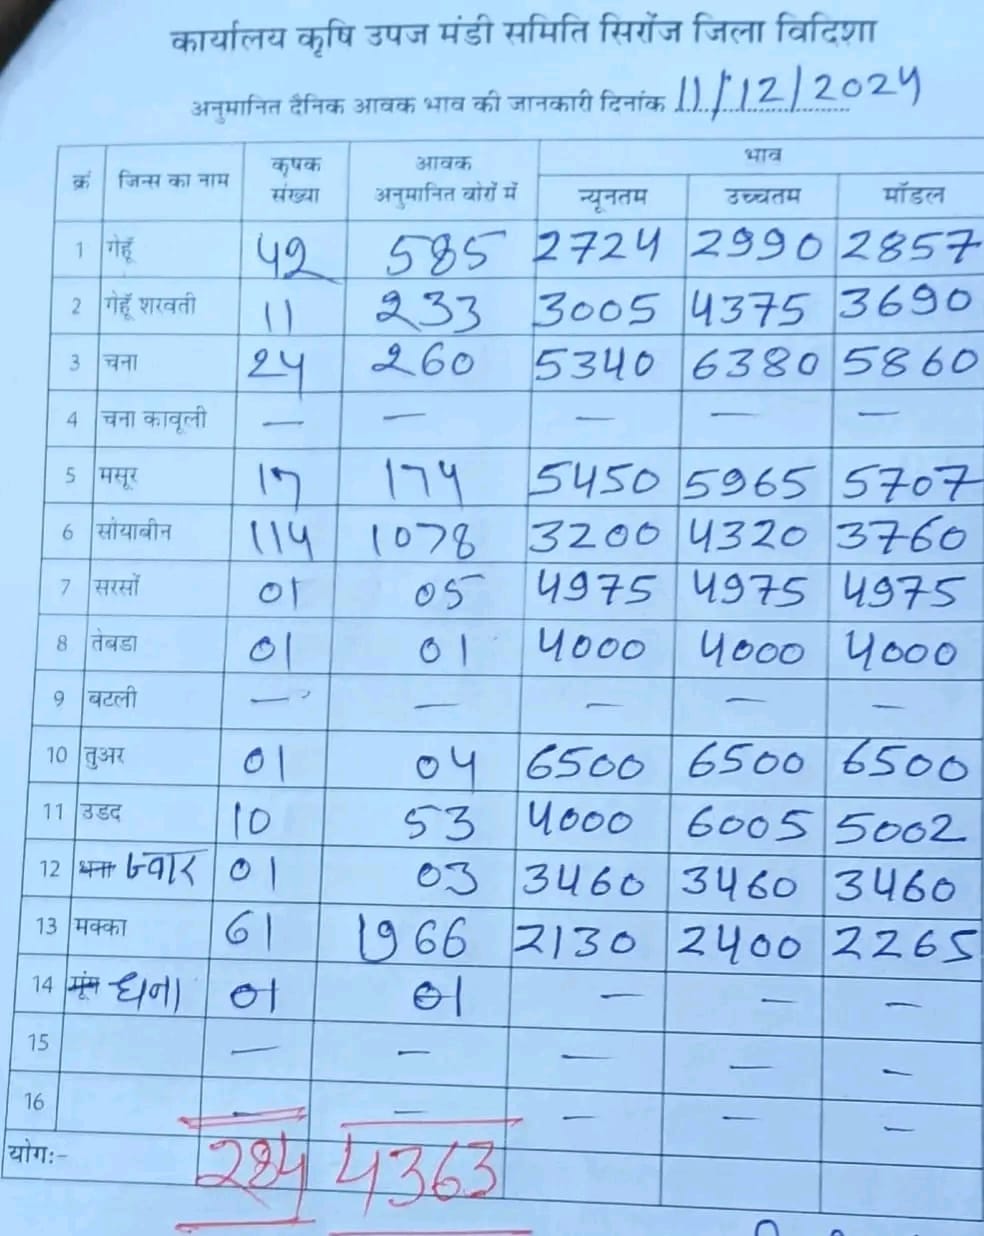 कार्यालय कृषि उपज मंडी समिति सिरोंज जिला विदिशा
अनुमानित दैनिक आवक भाव की जानकारी दिनांक 11/12/2024
क्रं जिन्स का नाम कृषक संख्या आवक अनुमानित बोरों में भाव
न्यूनतम उच्चतम मॉडल
1 गेहूँ 42 585 2724 2990 2857
2 गेहूँ शरवती 11 233 3005 4375 3690
3 चना 24 260 5340 6380 5860
4 चना कावूली — — — — —
5 मसूर 17 174 5450 5965 5707
6 सोयाबीन 114 1078 3200 4320 3760
7 सरसों 01 05 4975 4975 4975
8 तेबडा 01 01 4000 4000 4000
9 बटली — — — — —
10 तुअर 01 04 6500 6500 6500
11 उडद 10 53 4000 6005 5002
12 धना ज्वार 01 03 3460 3460 3460
13 मक्का 61 1966 2130 2400 2265
14 मूंग धना 01 01 — — —
15 — — — — —
16 — — — — —
योगः- 284 4363